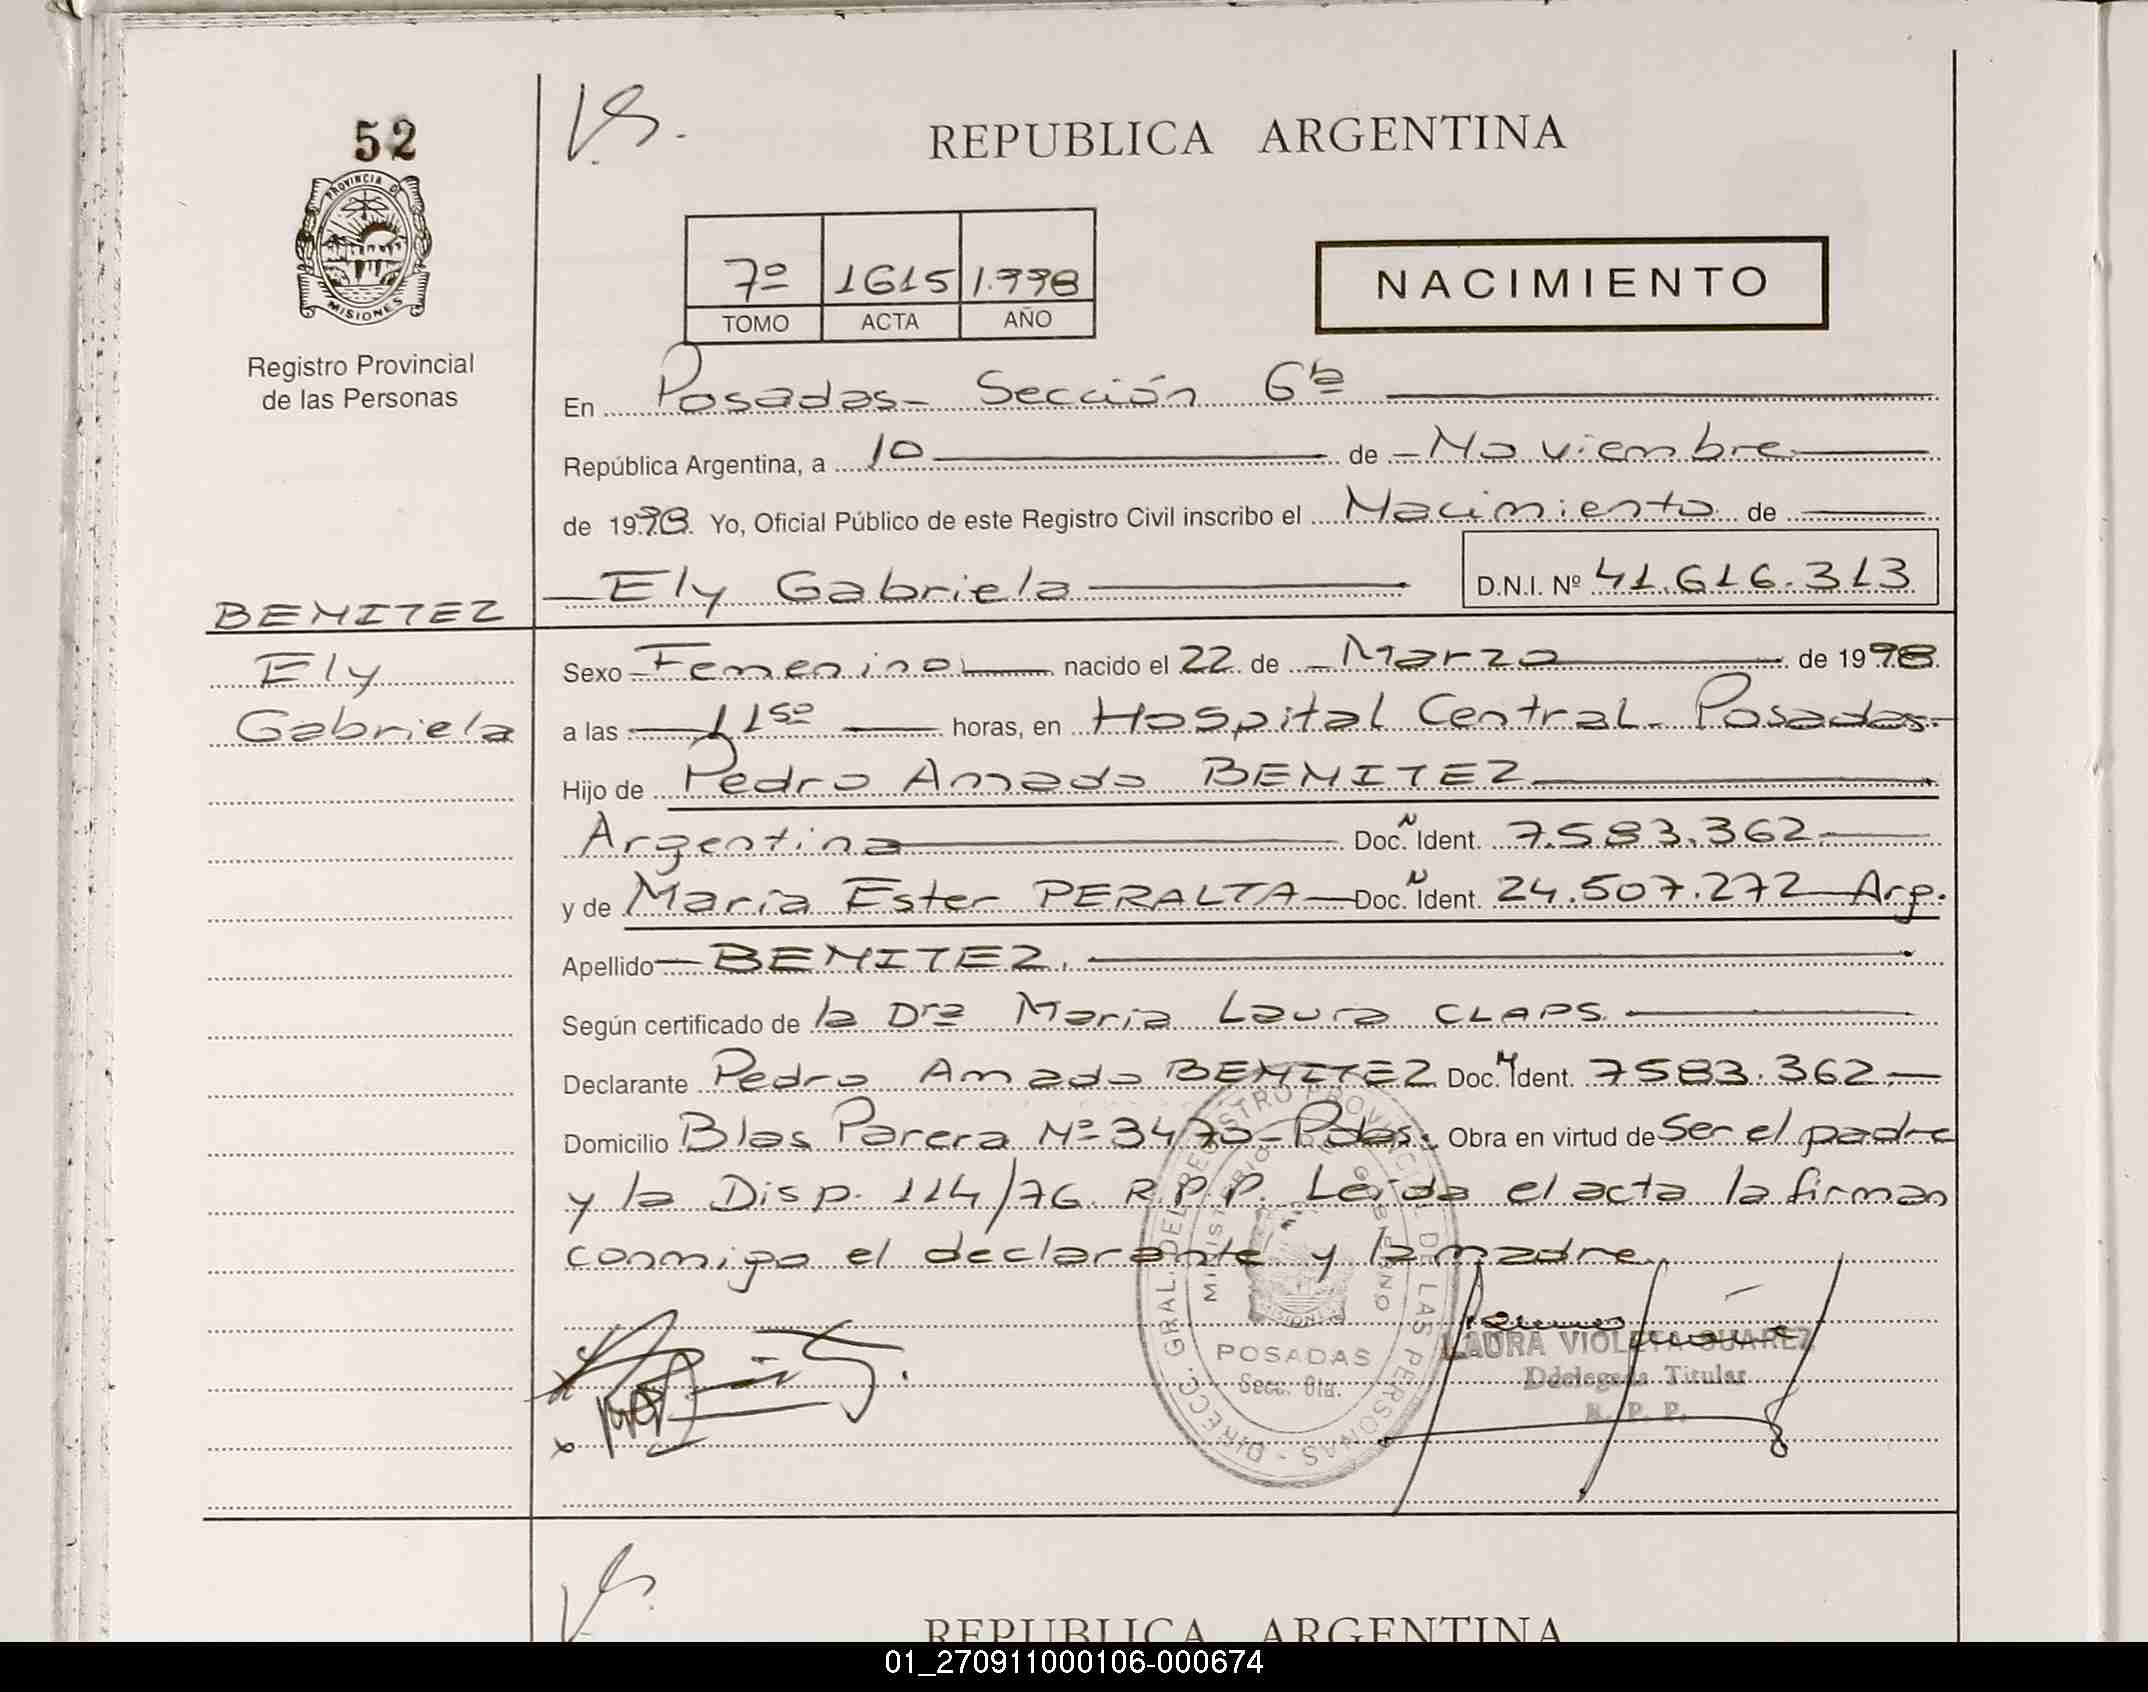 52
V.S.
REPUBLICA ARGENTINA
PROVINCIA DE
MISIONES
7º 1615 1.998
TOMO ACTA AÑO
NACIMIENTO
Registro Provincial
de las Personas
En Posadas- Sección 6ta
República Argentina, a 10 de Noviembre
de 1998. Yo, Oficial Público de este Registro Civil inscribo el Nacimiento de
Ely Gabriela D.N.I. Nº 41.616.313
BENITEZ
Ely
Gabriela
Sexo Femenino nacido el 22 de Marzo de 1998.
a las 11 50 horas, en Hospital Central- Posadas-
Hijo de Pedro Amado BENITEZ
Argentina Doc. N Ident. 7.583.362-
y de María Ester PERALTA Doc. N Ident. 24.507.272 Arg.
Apellido BENITEZ.
Según certificado de la Dra María Laura CLAPS
Declarante Pedro Amado BENITEZ Doc. N Ident. 7583.362.-
Domicilio Blas Parera Nº 3470- Pdas. Obra en virtud de Ser el padre
y la Disp. 114/76 R.P.P. Leída el acta la firman
conmigo el declarante y la madre.
DIRECC. GRAL. DEL REGISTRO PROVINCIAL DE LAS PERSONAS -
MINISTERIO GOBIERNO
MISIONES
POSADAS
LAURA VIOLETA SUAREZ
Titular
R. P. P.
V.S.
REPUBLICA ARGENTINA
01_270911000106-000674